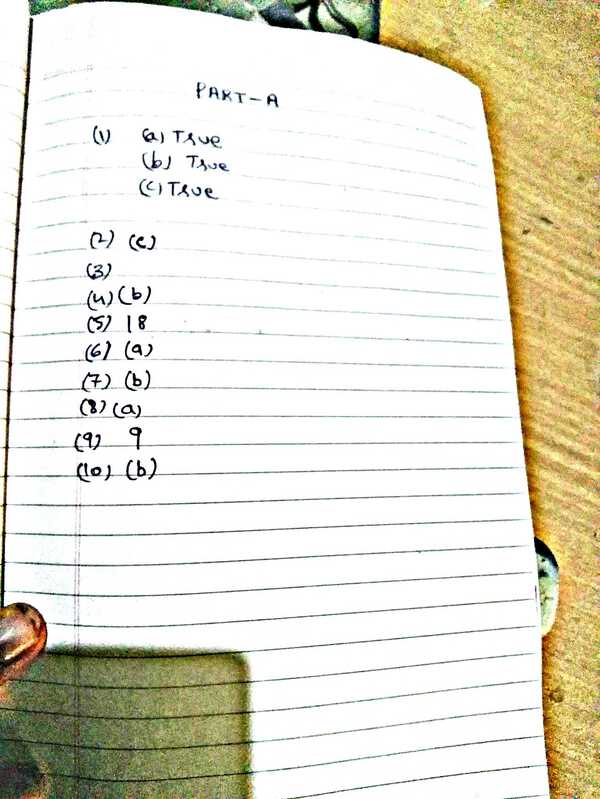 PART-A
(1) (a) True
(b) True
(c) True
(2) (c)
(3)
(4) (b)
(5) 18
(6) (a)
(7) (b)
(8) (a)
(9) 9
(10) (b)